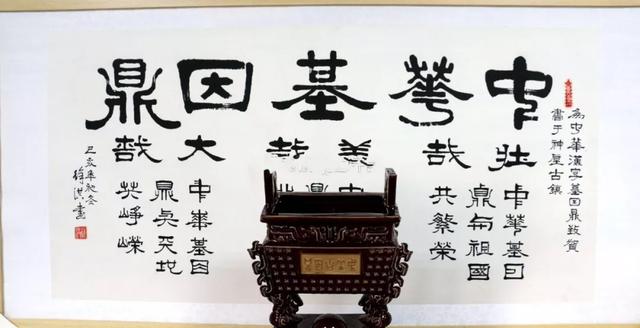 為中華漢字基因鼎致賀
書于神垕古鎮
中華基因鼎
壯哉美哉大哉
中華基因
鼎與祖國
共繁榮
中
鼎
中華基因
鼎與天地
共崢嶸
己亥年初冬
洪書